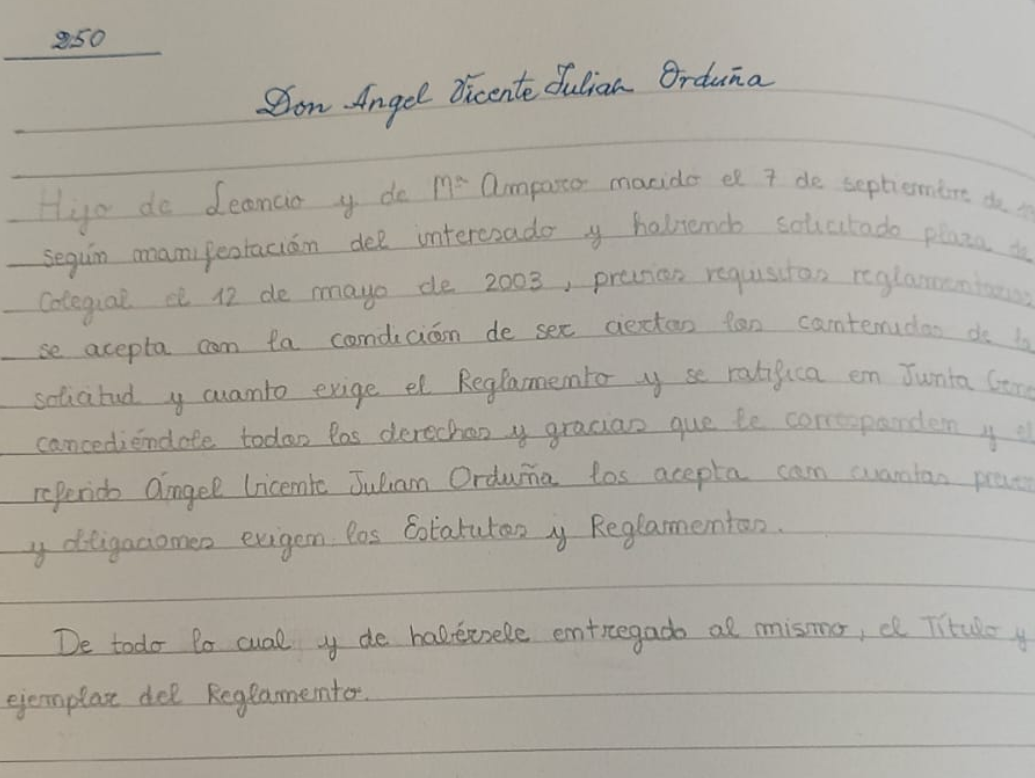 250
Don Angel Vicente Julian Orduña
Hijo de Leoncio y de Mª Amparo nacido el 7 de septiembre de
según manifestación del interesado y habiendo solicitado plaza de
Colegial el 12 de mayo de 2003, previos requisitos reglamentarios,
se acepta con la condición de ser ciertos los contenidos de la
solicitud y cuanto exige el Reglamento y se ratifica en Junta
concediéndole todos los derechos y gracias que le corresponden y el
referido Ángel Vicente Julian Orduña los acepta con cuantas
y obligaciones exigen los Estatutos y Reglamentos.
De todo lo cual y de habérsele entregado al mismo, el Título y
ejemplar del Reglamento.